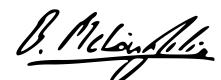 B. McLoughlin